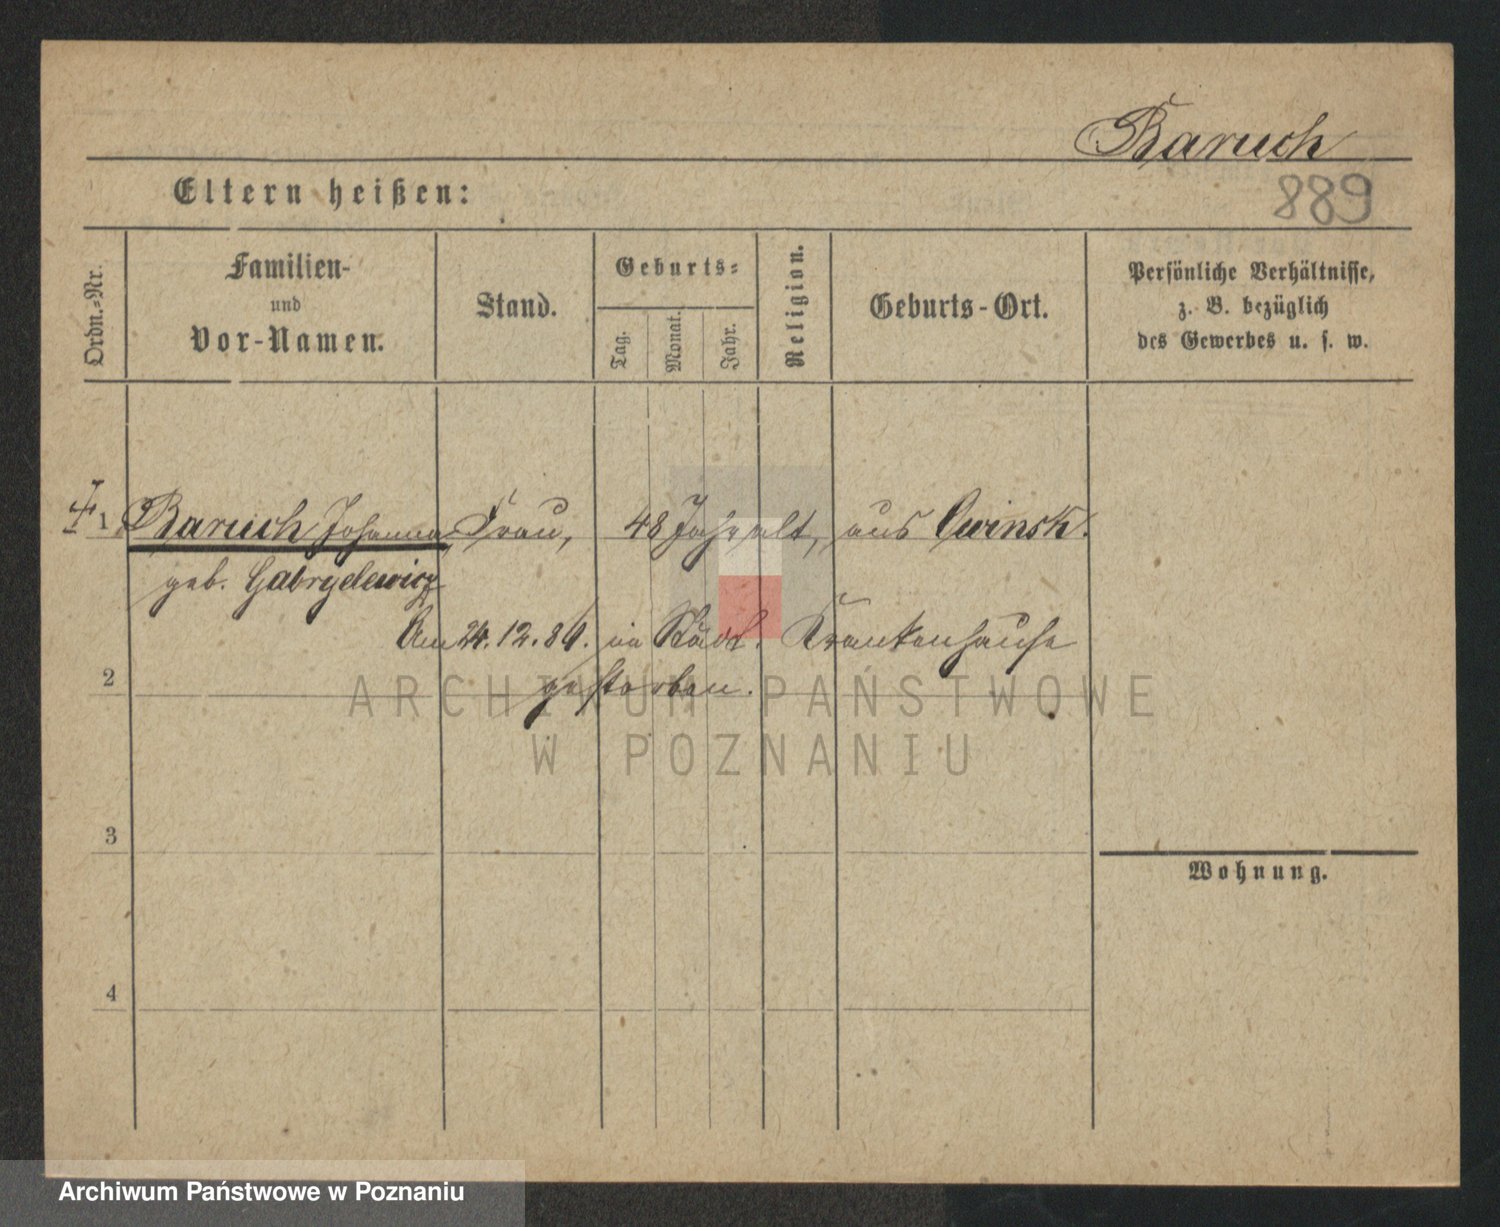 Baruch
Eltern heißen:
889
Ordn.-Nr.
Familien-
und
Vor-Namen.
Stand.
Geburts-
Tag.
Monat.
Jahr.
Religion.
Geburts-Ort.
Persönliche Verhältnisse,
z. B. bezüglich
des Gewerbes u. s. w.
1 Baruch Johanna Frau, 48 Jahr alt, aus Owinsk.
geb. Gabryelewicz
Am 24.12.86. im Städt. Krankenhause
2 gestorben.
3
Wohnung.
4
ARCHIWUM PAŃSTWOWE
W POZNANIU
Archiwum Państwowe w Poznaniu